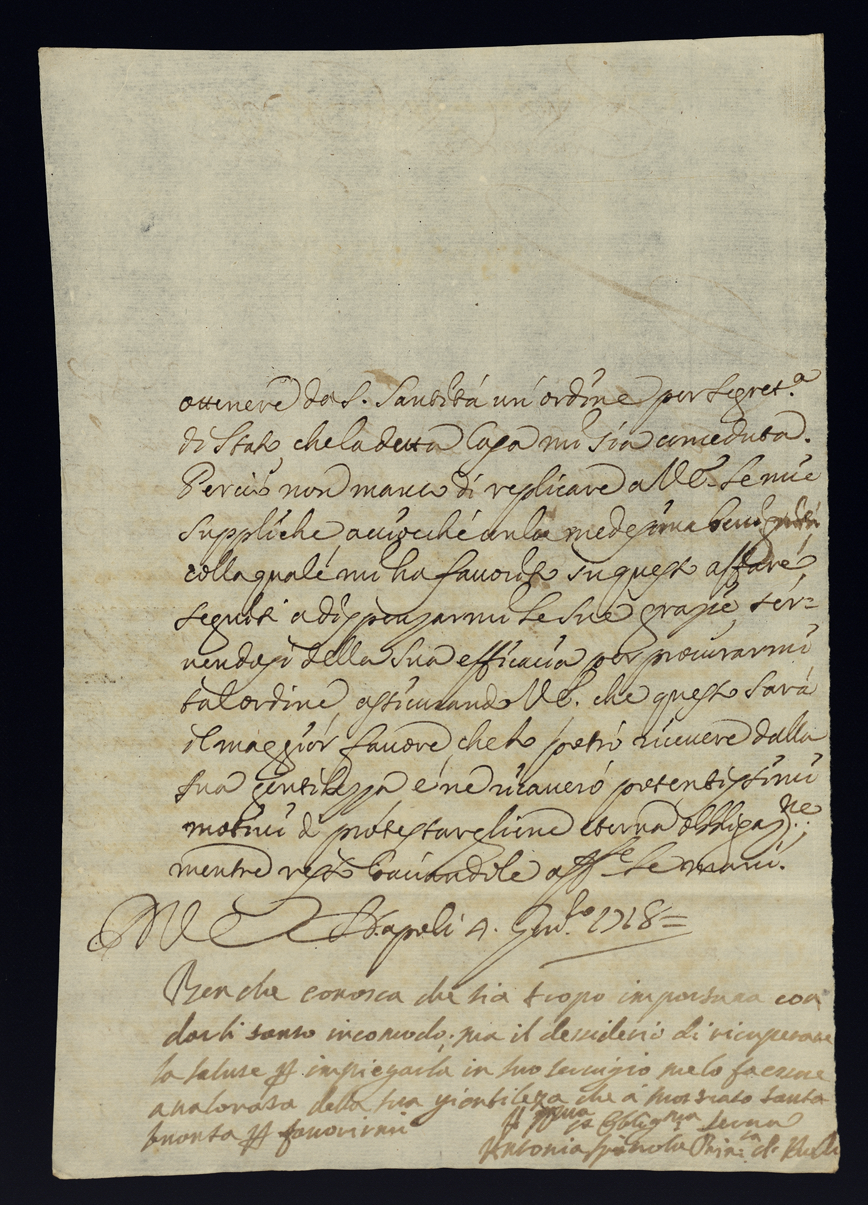 ottenere da S. Santità un'ordine per Segret.a
di Stato, che la detta Casa mi sia conceduta.
Perciò non manco di replicare a V.E. le mie
suppliche acciochè con la medesima
colla quale mi ha favorito in questo affare,
seguiti a dispenzarmi le sue grazie, ser=
vendosi della sua efficacia per procurarmi
tal ordine, assicurando V.E. che questo sarà
il maggior favore, che potrò ricevere dalla
sua gentilezza e ne ricaverò potentissimi
motivi di protestargliene eterna obbligaz.ne:
mentre resto baciandole aff.te le mani.
Napoli 4. 1718=
Benche conosca che sia tropo importuna con
darli tanto incomodo, ma il dessiderio di ricuperare
la salute p impiegarla in suo servigio me lo fa
avalorata della sua gientileza che à mostrato tanta
bontà p favorirmi
Obligma Serva
Antonia Spinola Prin.sa di